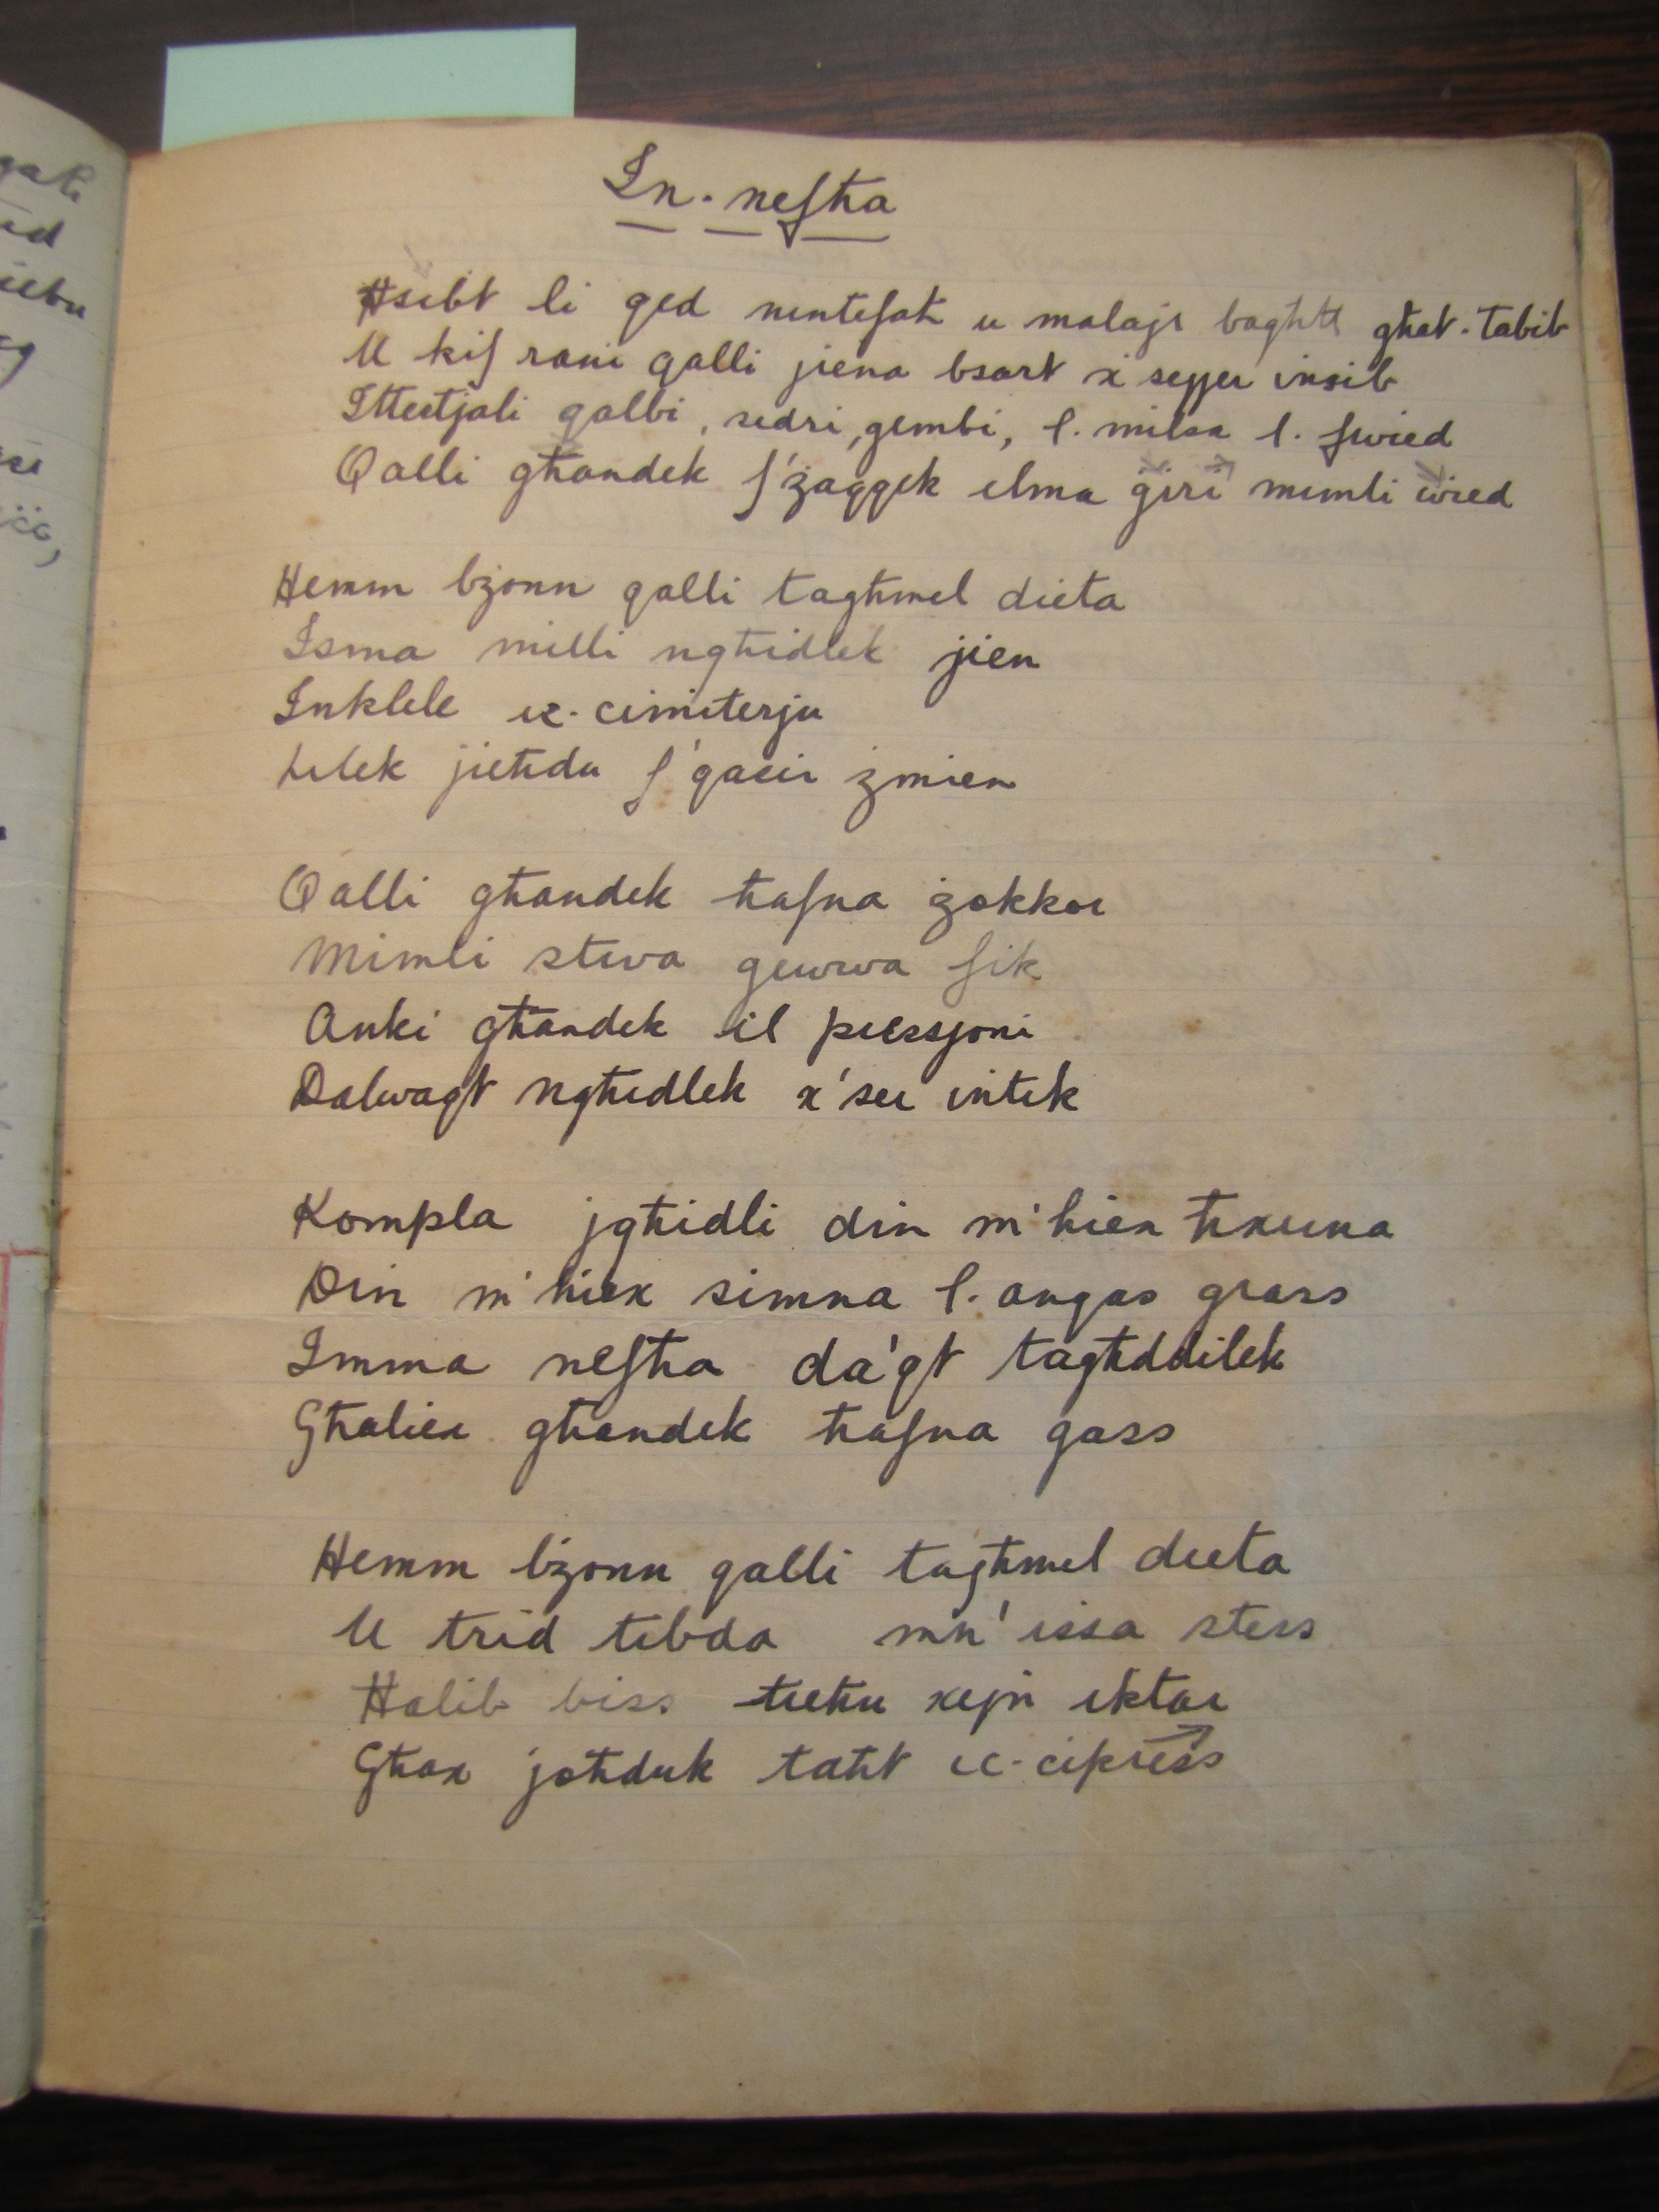 In-nefħa
Ħsibt li qed nintefaħ u malajr bagħtt għat-tabib
U kif rani qalli jiena bsart x'sejjer insib
Ittestjali qalbi, sidri, genbi, l-milsa l-fwied
Qalli għandek f'żaqqek elma ġiri mimli wied
Hemm bżonn qalli tagħmel dieta
Isma milli ngħidlek jien
Inklele iċ-cimiterju
Lilek jieħdu f'qasir żmien
Qalli għandek ħafna zokkor
Mimli stiva gewwa fik
Anki għandek il pressjoni
Dalwaqt ngħidlek x'ser intik
Kompla jgħidli din m'hiex ħxuna
Din m'hiex simna l-anqas grass
Imma nefħa da'qt tagħddilek
Għaliex għandek ħafna gass
Hemm bżonn qalli tagħmel dieta
U trid tibda mn'issa stess
Ħalib biss tieħu xejn iktar
Għax joħduk taħt iċ-cipress